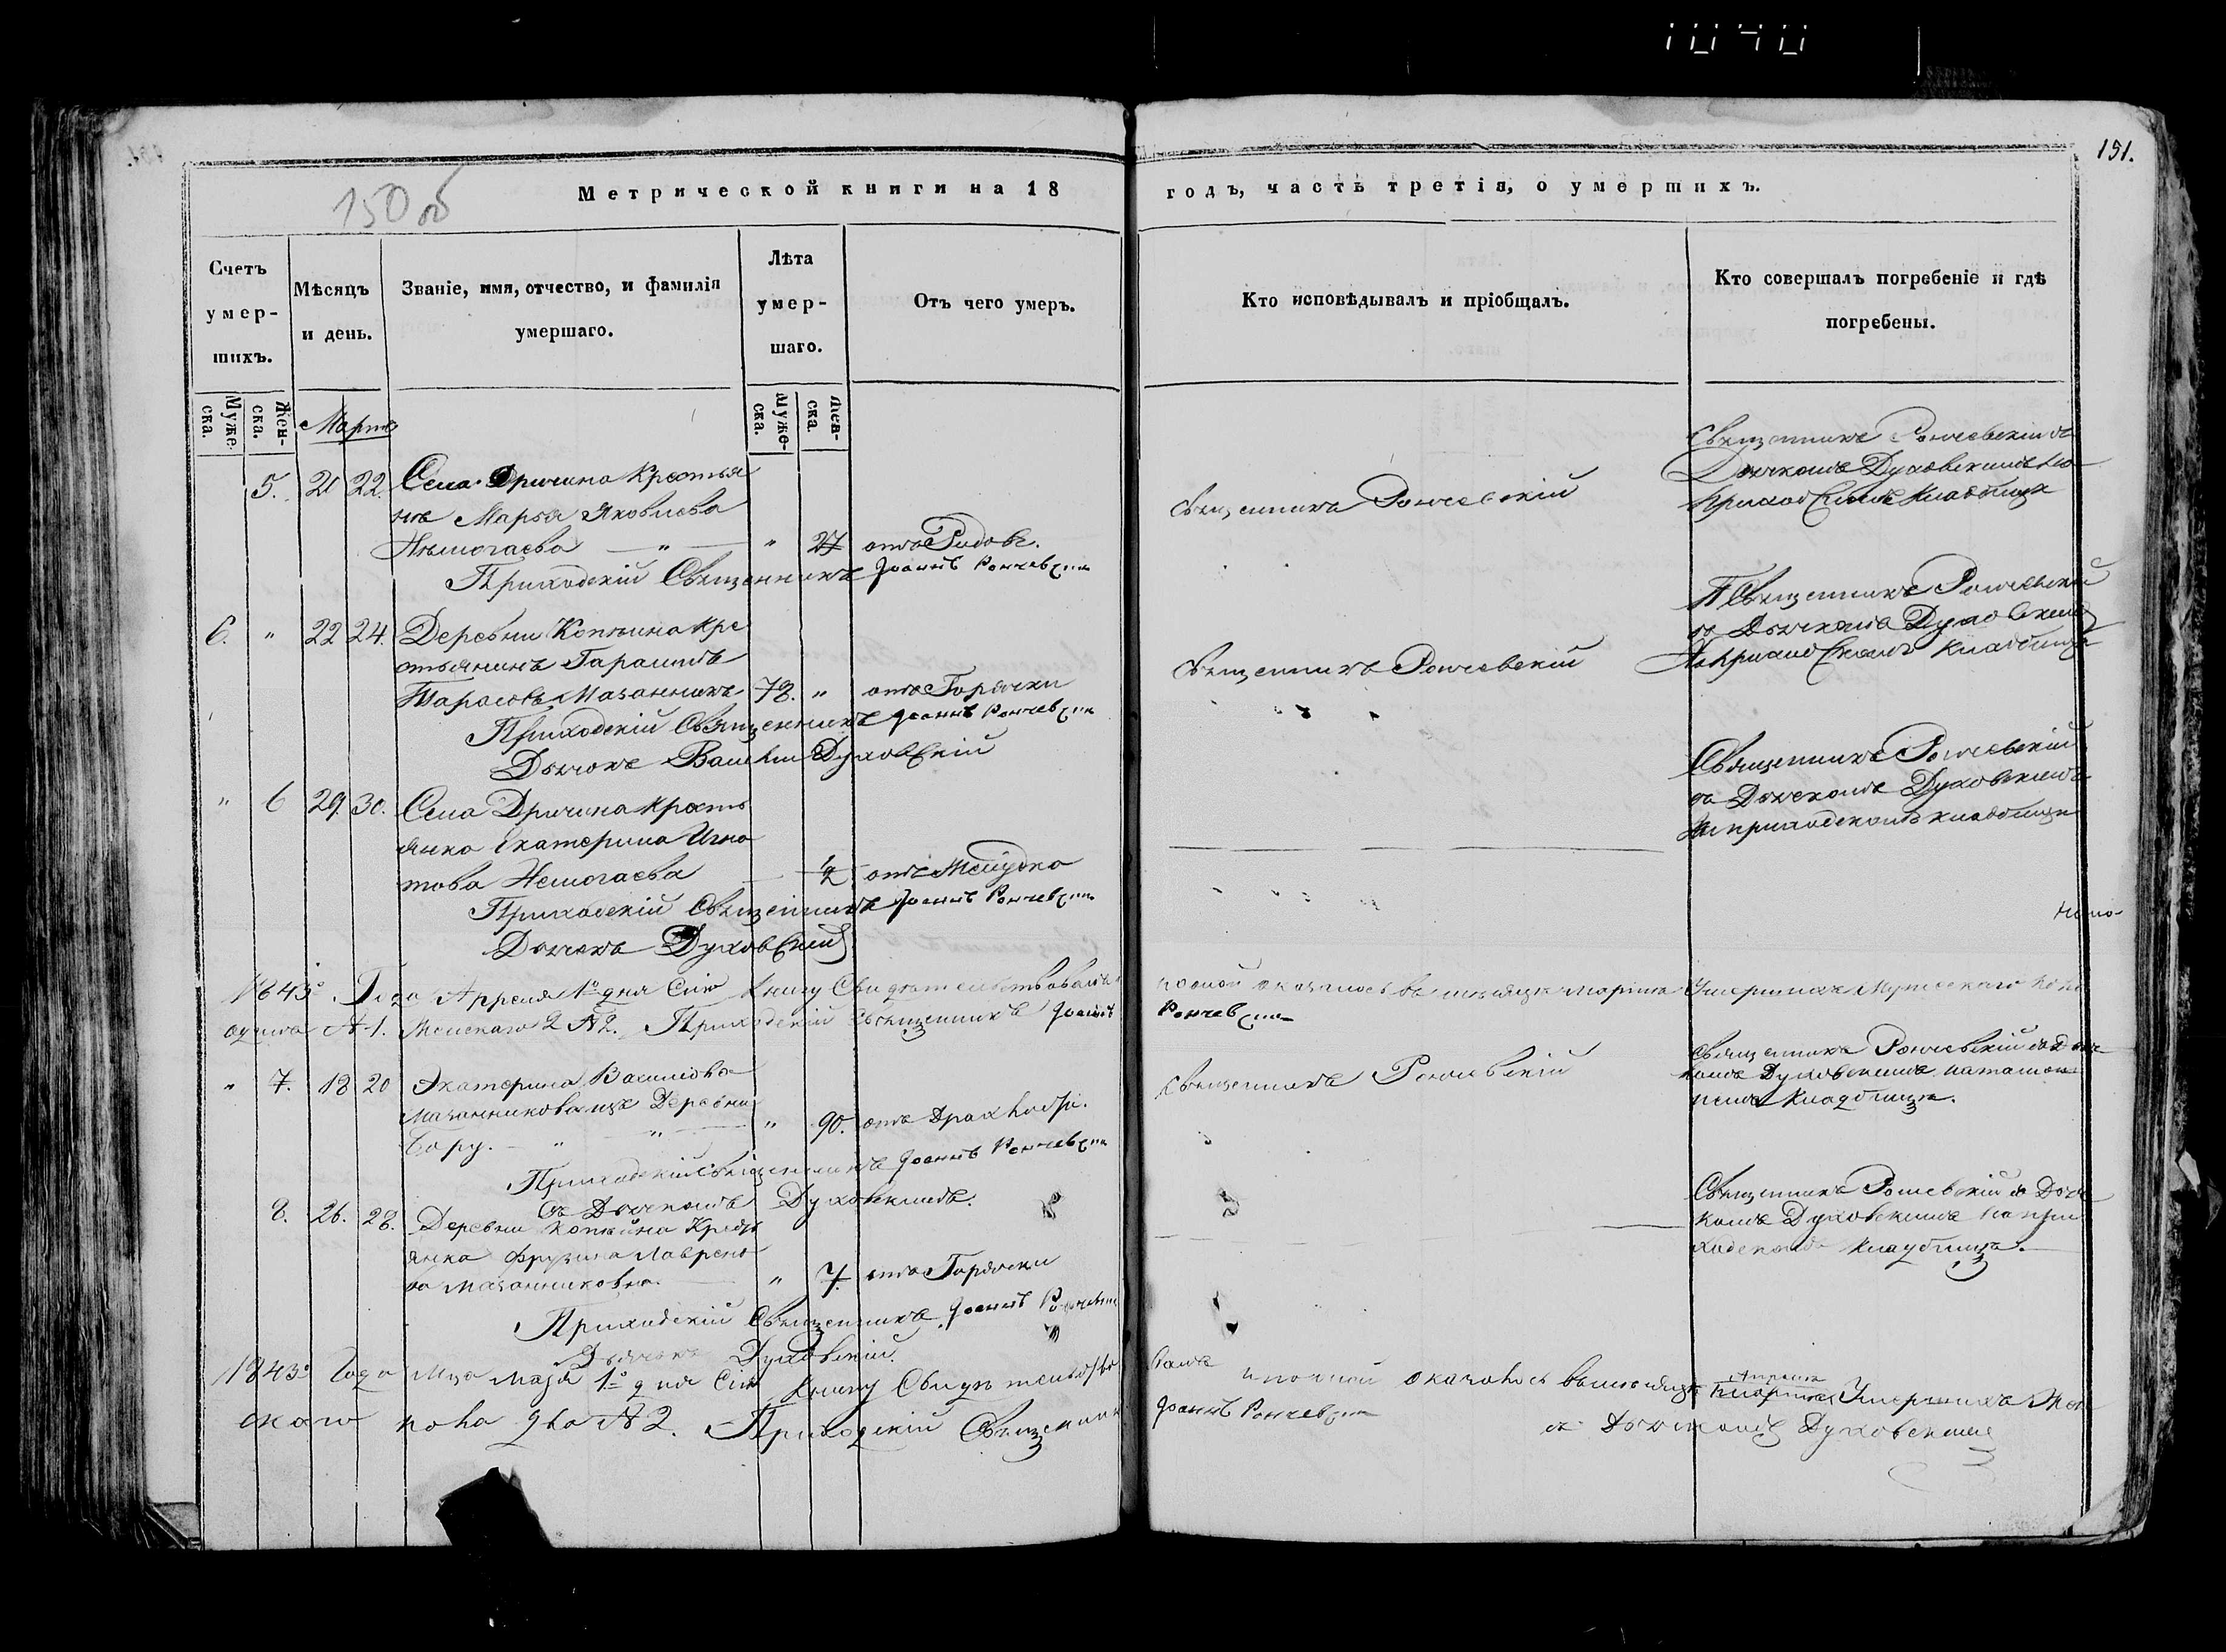 1040
151.
150 об
Метрической книги на 18
годъ, часть третія, о умершихъ.
Счетъ умер-шихъ.
Мѣсяцъ и день.
Званіе, имя, отчество, и фамилія умершаго.
Лѣта умер-шаго.
Отъ чего умеръ.
Кто исповѣдывалъ и пріобщалъ.
Кто совершалъ погребеніе и гдѣ погребены.
Муже-ска.
Жен-ска.
Муже-ска.
Жен-ска.
Мартъ
5. 20 22. Села Дричина Крестья
на Марья Яковлева
27 отъ Родовъ.
Священникъ Рончевскій
Священникъ Рончевскій съ
Дьячкомъ Духовскимъ на
приходскомъ кладбищѣ
Приходскій Священникъ Іоаннъ Рончевскій
6. " 22 24. Деревни Копѣина Кре
стьянинъ Гарасимъ
Тарасовъ Мазанникъ 78. " отъ Горячки
Священникъ Рончевскій
Священникъ Рончевскій
съ Дьячкомъ Духовскимъ
На приходскомъ кладбищѣ
Приходскій Священникъ Іоаннъ Рончевскій
Дьячокъ Духовскій
" 6 29. 30. Села Дричина Кресть
янка Екатерина Игна
това Немогаева 1/2 отъ Желудка
Священникъ Рончевскій
съ Дьячкомъ Духовскимъ
На приходскомъ кладбищѣ
Приходскій Священникъ Іоаннъ Рончевскій
Дьячокъ Духовскій
1843о Года Апреля 1о дня Сию Книгу Свидѣтельствовалъ
оказалось въ мѣсяцѣ марта Умершихъ Мужескаго пола
одинъ №1. Женскаго 2 №2. Приходскій Священникъ Іоаннъ
Рончевскій
" 7. 18 20 Екатерина Василіова
Мазанникова изъ Деревни
Бору. " " " 90. отъ Драхлости.
Священникъ Рончевскій
Священникъ Рончевскій съ Дьяч
комъ Духовскимъ
кладбищѣ.
Приходскій Священникъ Іоаннъ Рончевскій
съ Дьячкомъ Духовскимъ.
8. 26. 28. Деревни Копѣина Крестья
янка Фрузина Лаврено
ва Мазанникова " 7. отъ Горячки
Священникъ Рончевскій съ Дьяч
комъ Духовскимъ на при
ходскомъ кладбищѣ.
Приходскій Священникъ Іоаннъ Рончевскій
Дьячокъ Духовскій.
1843о Года Мца Маія 1о дня Сию Книгу Свидѣтельство
валъ и по оной оказалось въ мѣсяцѣ Апреля Умершихъ Жен
скаго пола два №2. Приходскій Священникъ
Іоаннъ Рончевскій
съ Дьячкомъ Духовскимъ